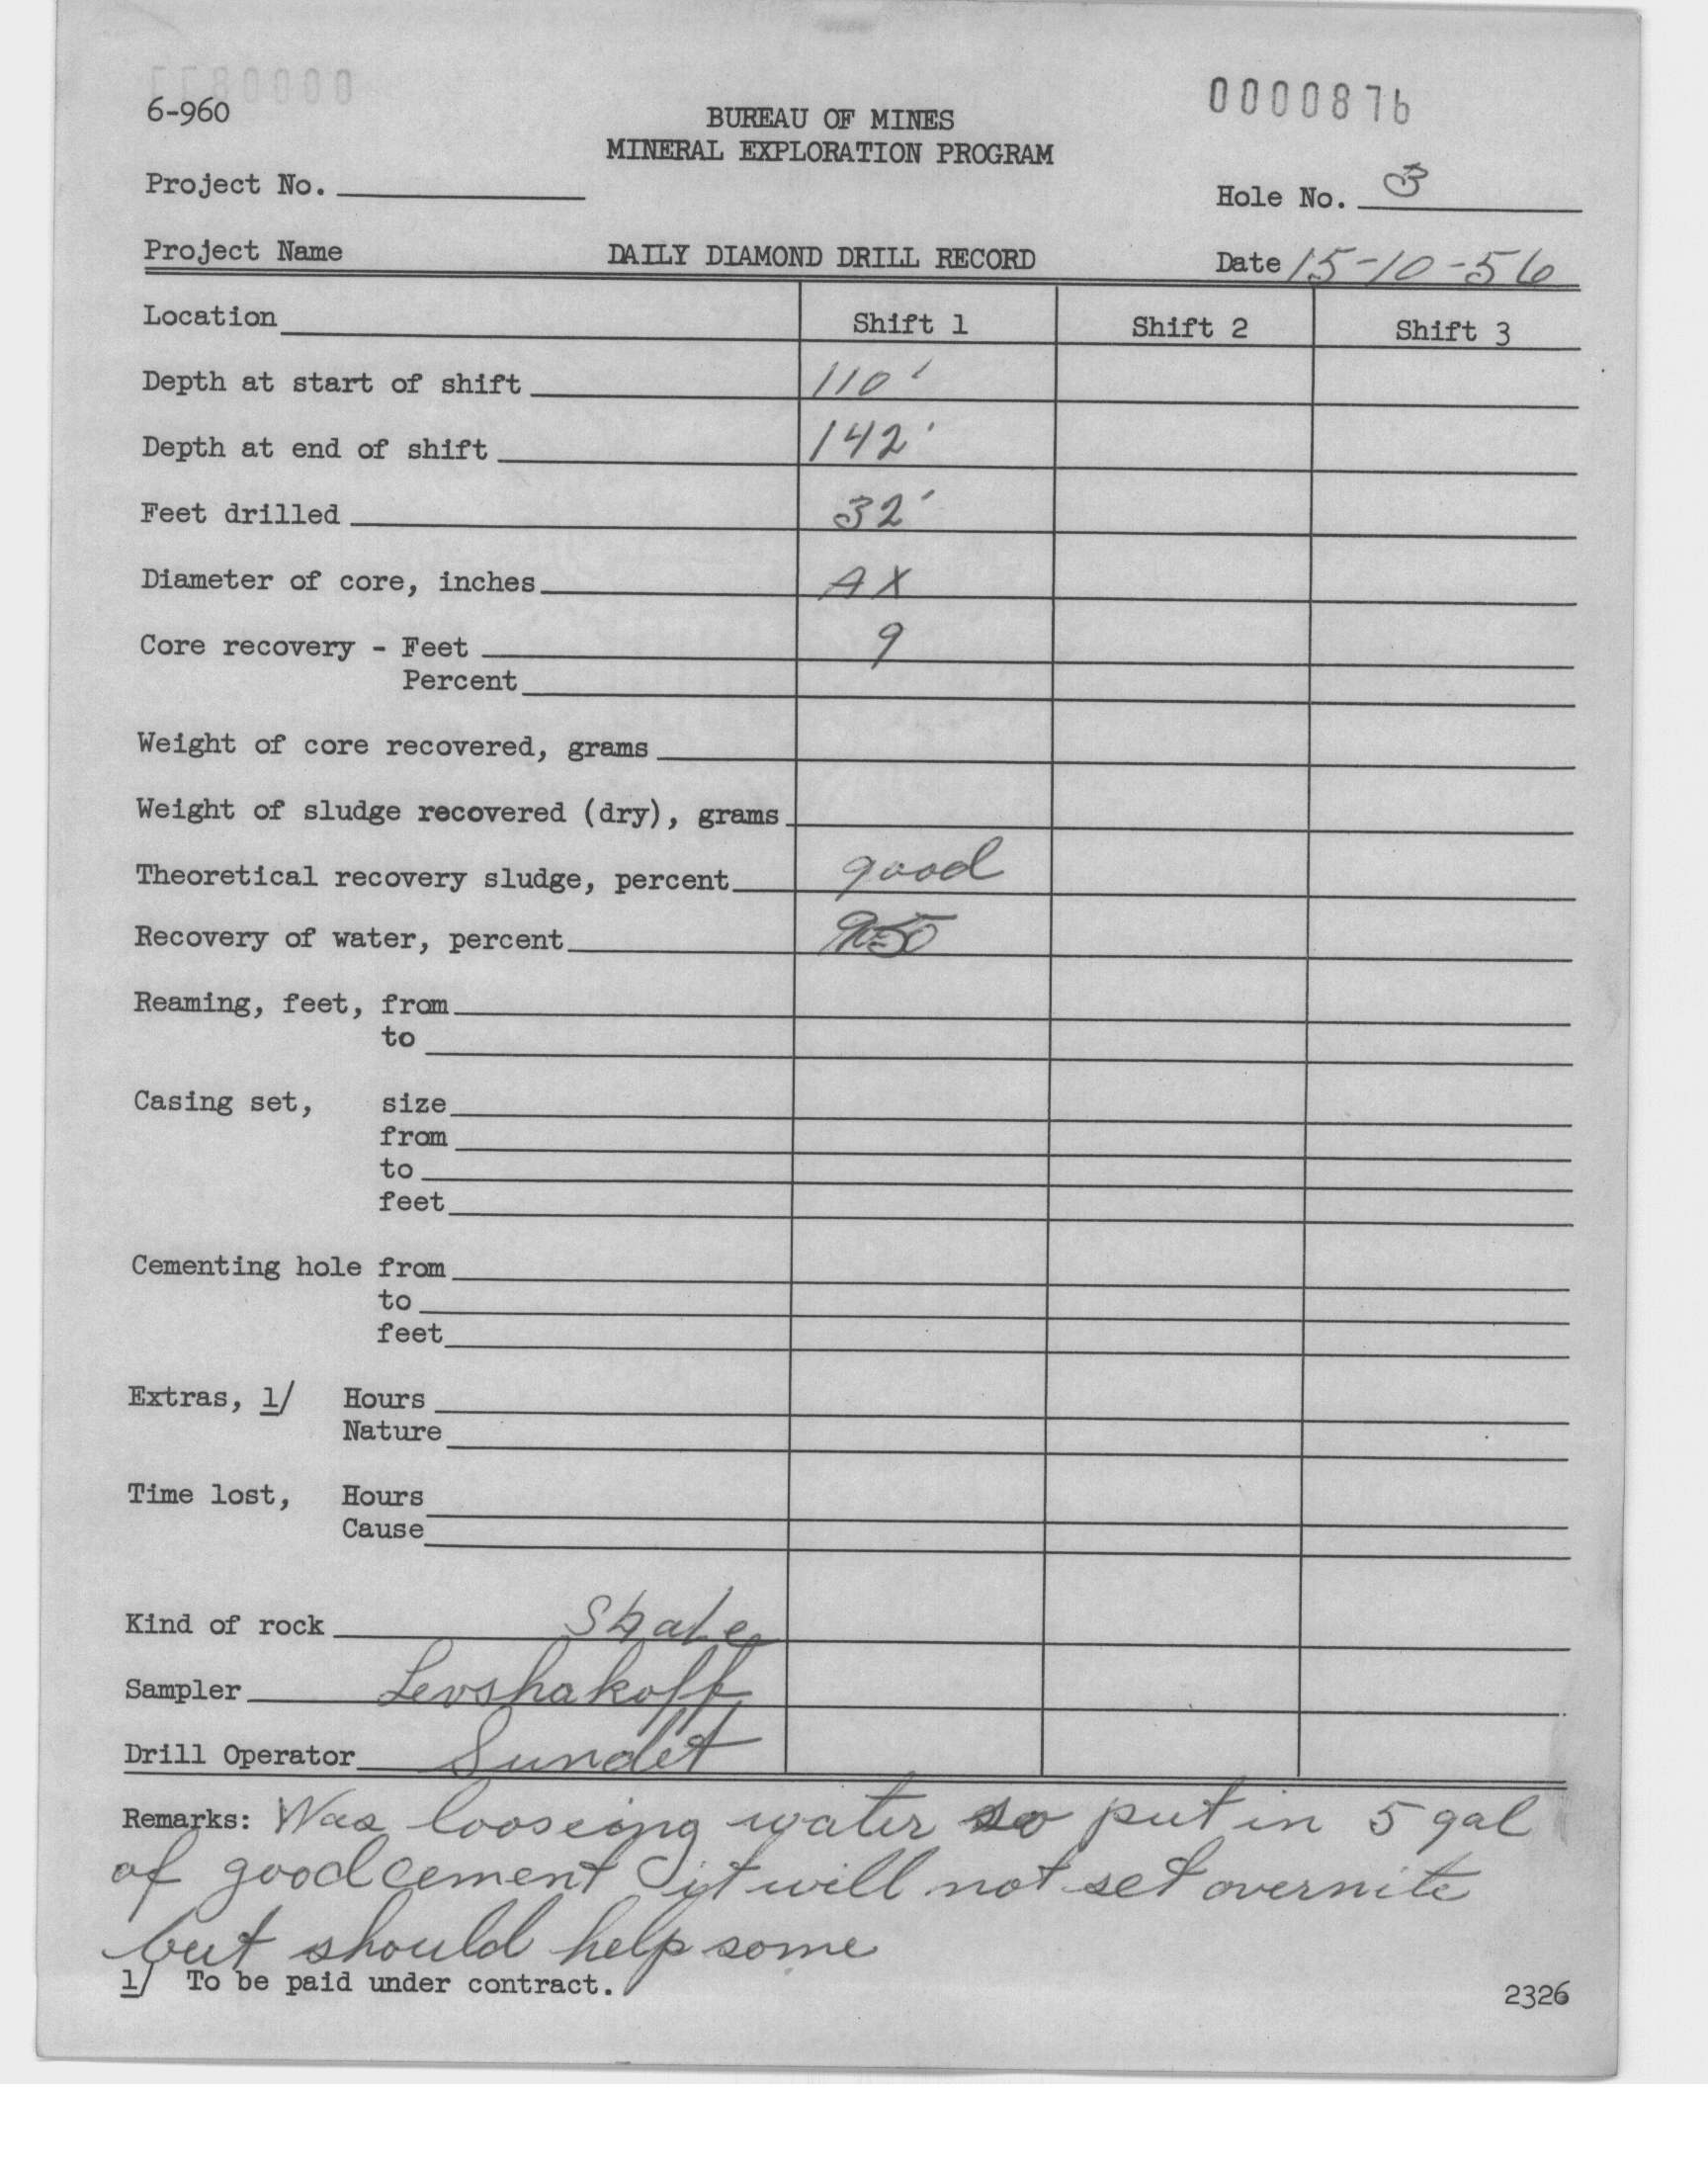 6-960
0000876
BUREAU OF MINES
MINERAL EXPLORATION PROGRAM
Project No.
Hole No. 3
Project Name DAILY DIAMOND DRILL RECORD Date 15-10-56
Location Shift 1 Shift 2 Shift 3
Depth at start of shift 110'
Depth at end of shift 142'
Feet drilled 32'
Diameter of core, inches AX
Core recovery - Feet 9
Percent
Weight of core recovered, grams
Weight of sludge recovered (dry), grams
Theoretical recovery sludge, percent good
Recovery of water, percent
Reaming, feet, from
to
Casing set, size
from
to
feet
Cementing hole from
to
feet
Extras, 1/ Hours
Nature
Time lost, Hours
Cause
Kind of rock Shale
Sampler Levshakoff
Drill Operator Sundet
Remarks: Was looseing water so put in 5 gal
of good cement it will not set overnite
but should help some
1/ To be paid under contract.
2326